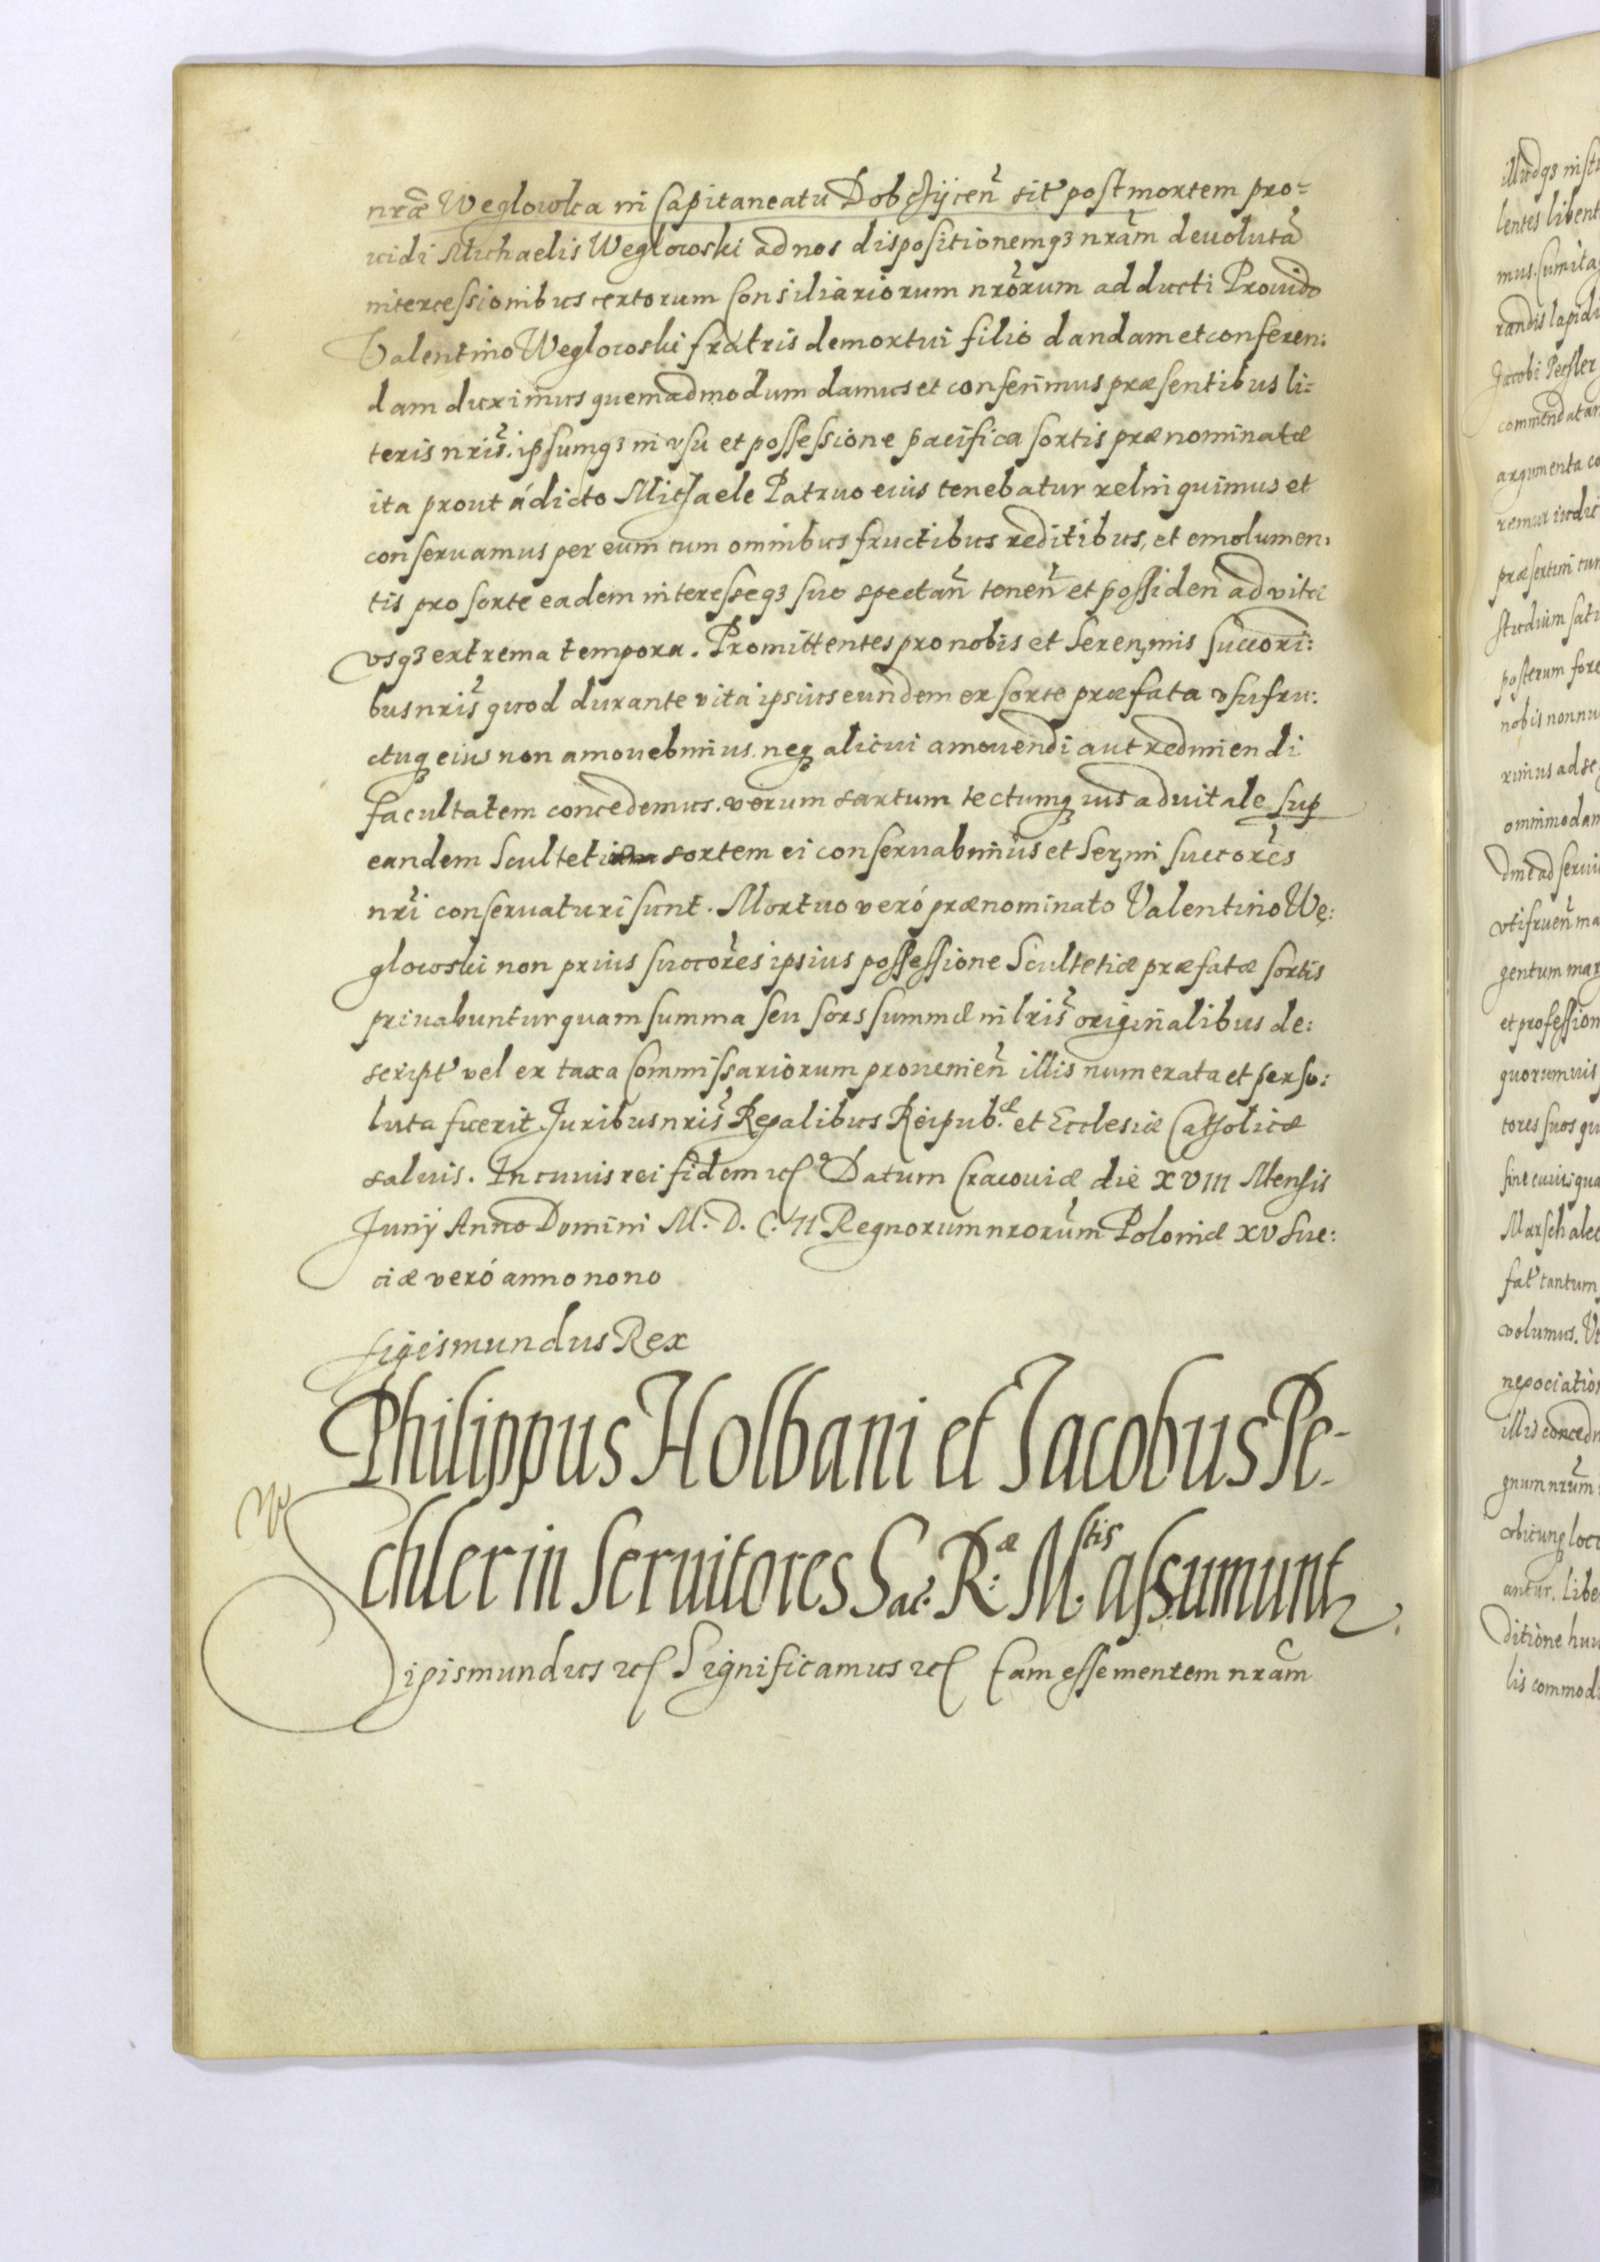 nrae Weglowka in Capitaneatu Dobczycen sit post mortem pro=
uidi Michaelis Weglowski ad nos dispositionemq3 nram deuoluta
intercessionibus certorum Consiliariorum nrorum adducti Prouido
Valentino Weglowski fratris demortui filio dandam et conferen:
dam duximus quemadmodum damus et conferimus præsentibus li:
teris nris. ipsumq3 in vsu et possessione pacifica sortis prænominatæ
ita prout á dicto Michaele Patruo eius tenebatur relinquimus et
conseruamus per eum cum omnibus fructibus reditibus, et emolumen:
tis pro sorte eadem interesseq3 suo spectan tenen et possiden ad vitæ
vsq3 extrema tempora. Promittentes pro nobis et Seren.mis succori:
bus nris quod durante vita ipsius eundem ex sorte præfata vsufru:
ctuq eius non amouebimus neq alicui amouendi aut redimendi
facultatem concedemus. verum sartum tectumq ius aduitale sup
eandem Scultetiæ sortem ei conseruabimus et Ser.mi succores
nri conseruaturi sunt. Mortuo veró prænominato Valentino Wę:
glowski non prius succores ipsius possessione Scultetiæ præfatæ sortis
priuabuntur quam summa seu sors summæ in lris originalibus de:
script vel ex taxa Commissariorum prouenien illis numerata et perso:
luta fuerit. Juribus nris Regalibus Reipub.æ et Ecclesiæ Catholicæ
saluis. In cuius rei fidem etc Datum Cracouiæ die XVIII Mensis
Junij Anno Domini M. D. C. II Regnorum nrorum Poloniæ XV Sue:
ciæ veró anno nono
Sigismundus Rex
Philippus Holbani et Jacobus Pe-
chler in Seruitores Sac. R:æ M.tis assumunt.
Sigismundus etc Significamus etc Eam esse mentem nram
illudq3 insti
lentes libent
mus. Cum ita
randis lapidi
Jacobi Pechler
commendatam
argumenta co
remur iudic
præsertim cum
studium satis
posterum fore
nobis non nu
ximus ad se
omnimodam
ad serui
vti fruen ma
gentum mar
et profession
quorumuis
tores suos qu
sine cuiusqua
Marschalc
fat tantum
volumus. Vt
negociation
illis conced
gnum nrum
vbicunq loco
antur. Libe
ditione huiu
lis commodi